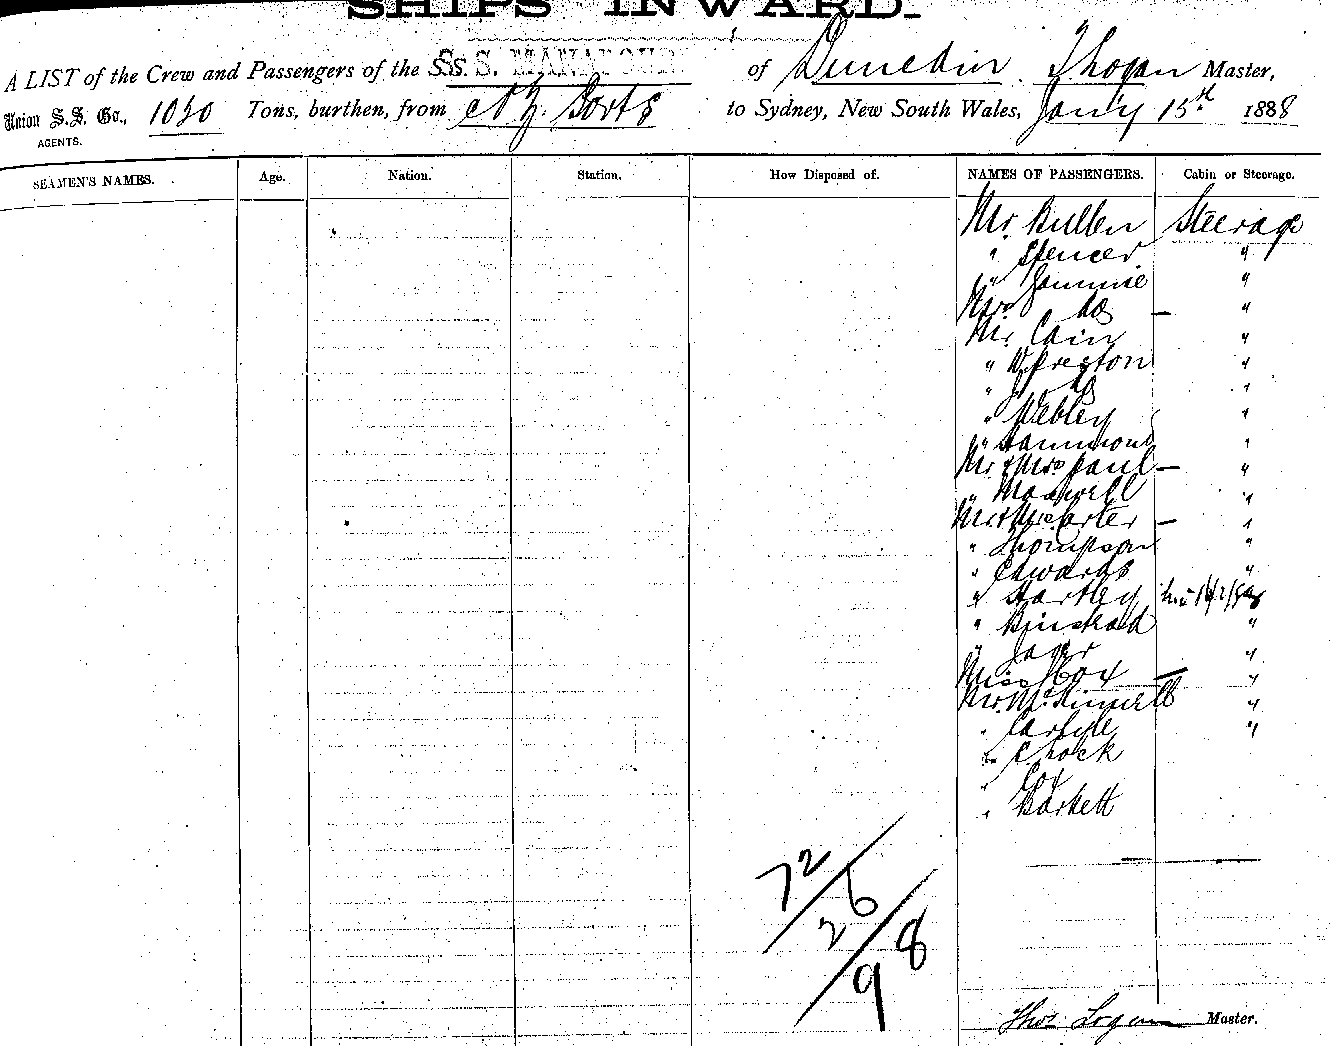 SHIPS INWARD.
A LIST of the Crew and Passengers of the S.S. MANAPOURI of Dunedin Logan Master,
Union S.S. Co., 1020 Tons, burthen, from N.Z. Ports to Sydney, New South Wales, Jany 15th 1888
AGENTS.
SEAMEN'S NAMES. Age. Nation. Station. How Disposed of. NAMES OF PASSENGERS. Cabin or Steerage.
Mr. Bullen Steerage
" Spencer "
" "
Mrs do — "
Mr. Cain "
" W. Preston "
" J. do "
" Webley "
" Hammond "
Mr & Mrs Paul — "
" Maxwell "
Mr & Mrs Carter — "
" Thompson "
" Edwards "
" Hartley
" "
" Jager "
Miss Cox — "
Mr. "
" Carlyle "
" Chock
" Cox
" Barkett
72
26
98
Thos. Logan Master.